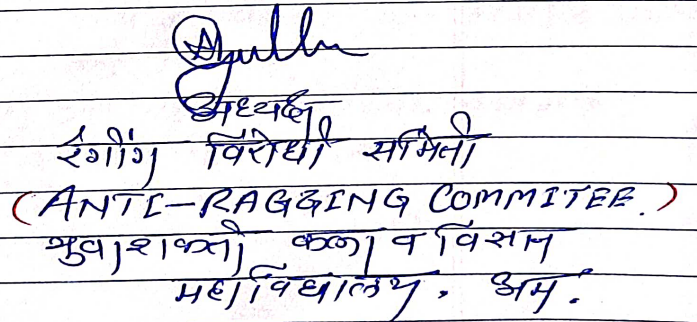 अध्यक्ष
रॅगींग विरोधी समिती
(ANTI-RAGGING COMMITEE.)
युवाशक्ती कला व विज्ञान
महाविद्यालय, अम.